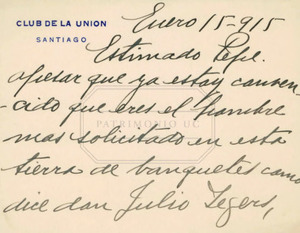 CLUB DE LA UNION
SANTIAGO
Enero 15-915
Estimado Pepe.
apesar que ya estoy conven
-cido que eres el hombre
mas solicitado en esta
tierra de banquetes como
dice don Julio Zegers,
PATRIMONIO UC